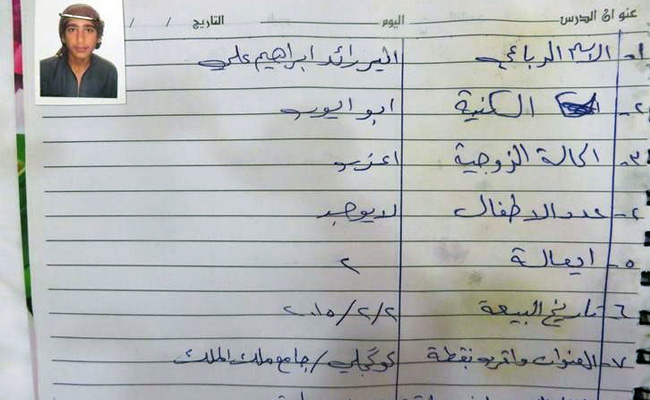 عنوان الدرس اليوم التاريخ / /
١- الاسم الرباعي رائد ابراهيم علي
٢- الكنية ابو ايوب
٣- الحالة الزوجية اعزب
٤- عدد الاطفال لا يوجد
٥- ايعالة ٢
٦- تاريخ البيعة ٢/٢/٢٠١٥
٧- العنوان واقرب نقطة كوكجلي/جامع ملك الملك